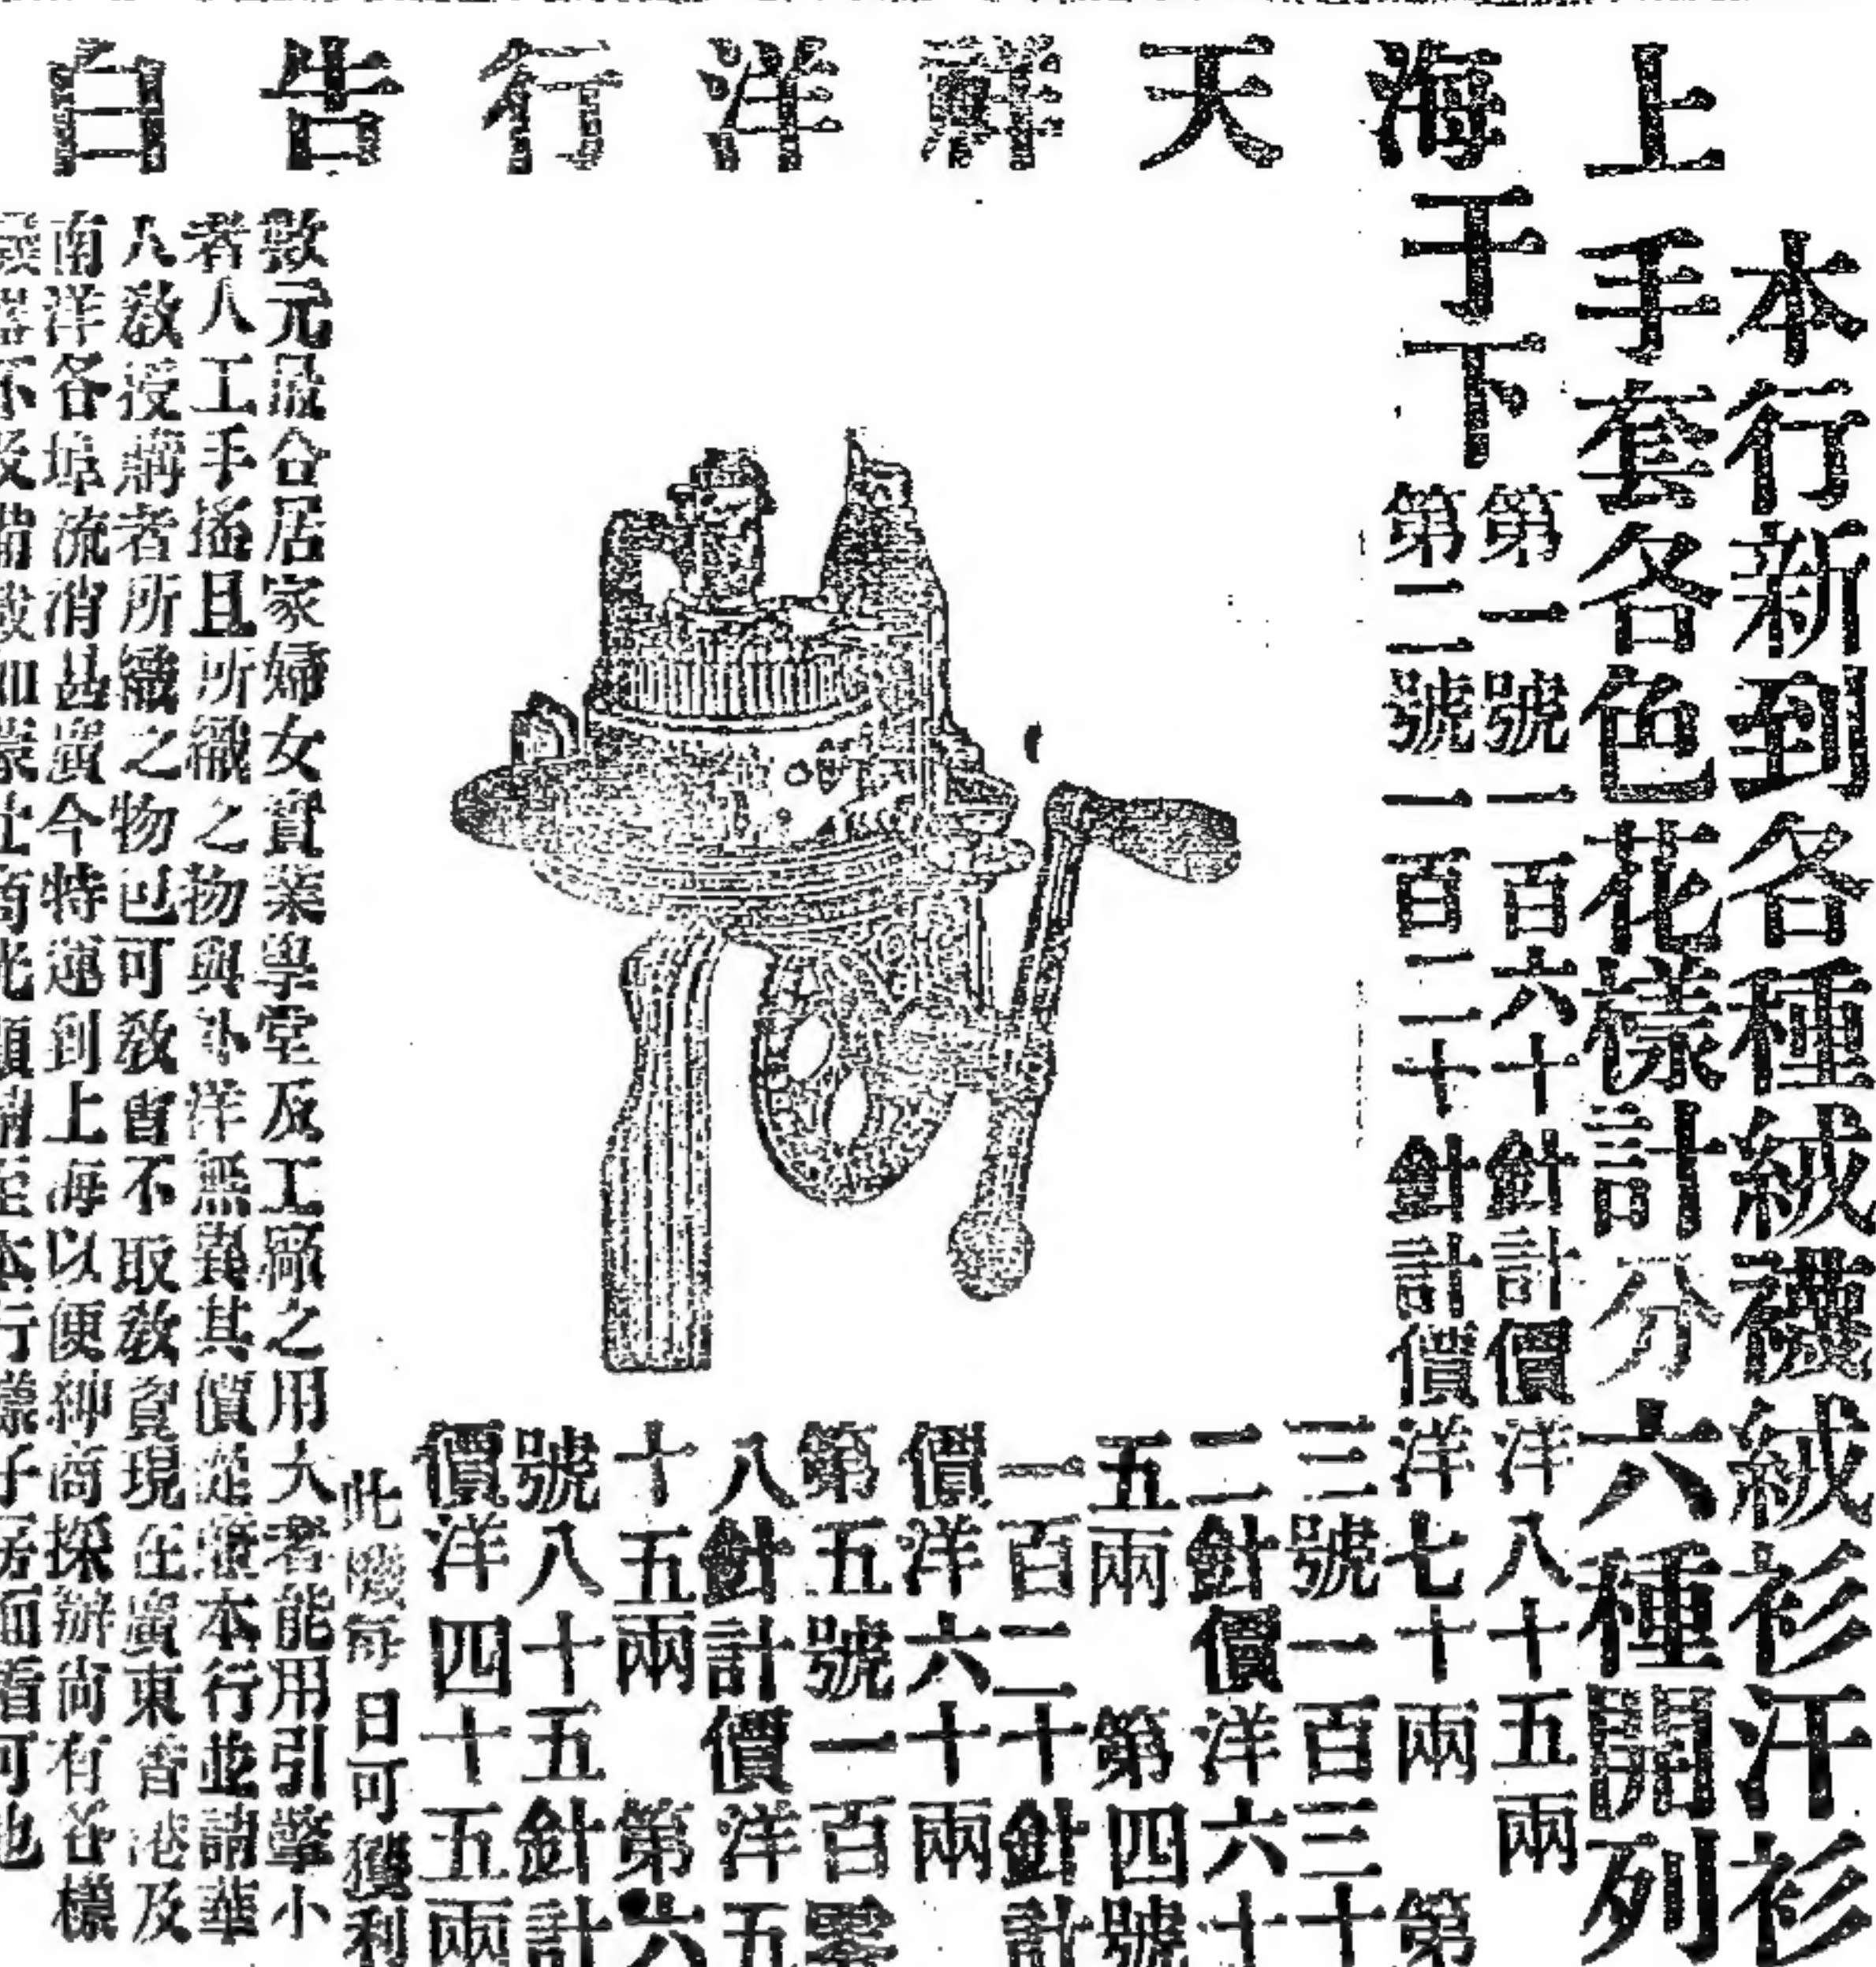 上海天祥洋行告白
本行新到各種絨襪絨衫汗衫
手套各色花樣計分六種開列
于下
第一號一百六十針計價洋八十五兩
第二號一百二十針計價洋七十兩 第
三號一百三十
二針價洋六十
五兩 第四號
一百二十針計
價洋六十兩
第五號一百零
八針計價洋五
十五兩 第六
號八十五針計
價洋四十五兩
此機每日可獲利
數元最合居家婦女實業學堂及工廠之用大者能用引擎小
者人工手搖且所織之物與外洋無異其價差廉本行並請華
人教授購者所織之物已可教會不取教資現在廣東香港及
南洋各埠流消甚廣今特運到上海以便紳商採辦尚有各樣
機器不及備載如蒙仕商光顧請至本行樣子房面看可也